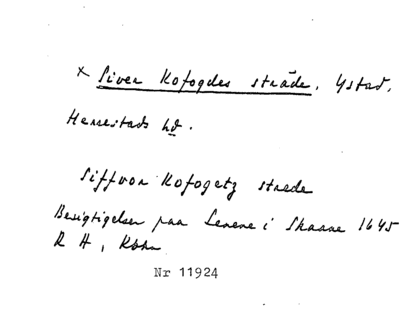 x Siver Kofogdes sträde. Ystad.
Herrestads hd.
Siffvor Kofogetz strede
Besigtigelser paa Lenene i Skaane 1645
R H, Kbhn
Nr 11924